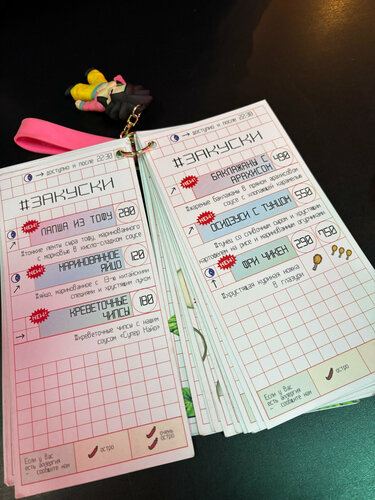 → доступно и после 22:30
#ЗАКУСКИ
NEW! ЛАПША ИЗ ТОФУ 280
#тонкие ленты сыра тофу, маринованного
с морковью в кисло-сладком соусе
NEW! МАРИНОВАННОЕ
ЯЙЦО 120
#яйцо, маринованное с 13-ю китайскими
специями и хрустящим луком
NEW! КРЕВЕТОЧНЫЕ
ЧИПСЫ 180
#креветочные чипсы с нашим
соусом «Супер Майо»
Если у Вас
есть аллергия
- сообщите нам
остро
очень
остро
→ доступно и после 22:30
#ЗАКУСКИ
NEW! БАКЛАЖАНЫ С
АРАХИСОМ 490
#жареные баклажаны в пряном арахисовом
соусе с хлопающей карамелью
NEW! ОСИДЗУСИ С ТУНЦОМ 550
#тунец со сливочным сыром и хрустящим
картофелем на рисе и маринованными огурчиками
NEW! ФРИ ЧИКЕН 290 750
#хрустящая куриная ножка
в глазури
Если у Вас
есть аллергия
- сообщите нам
остро